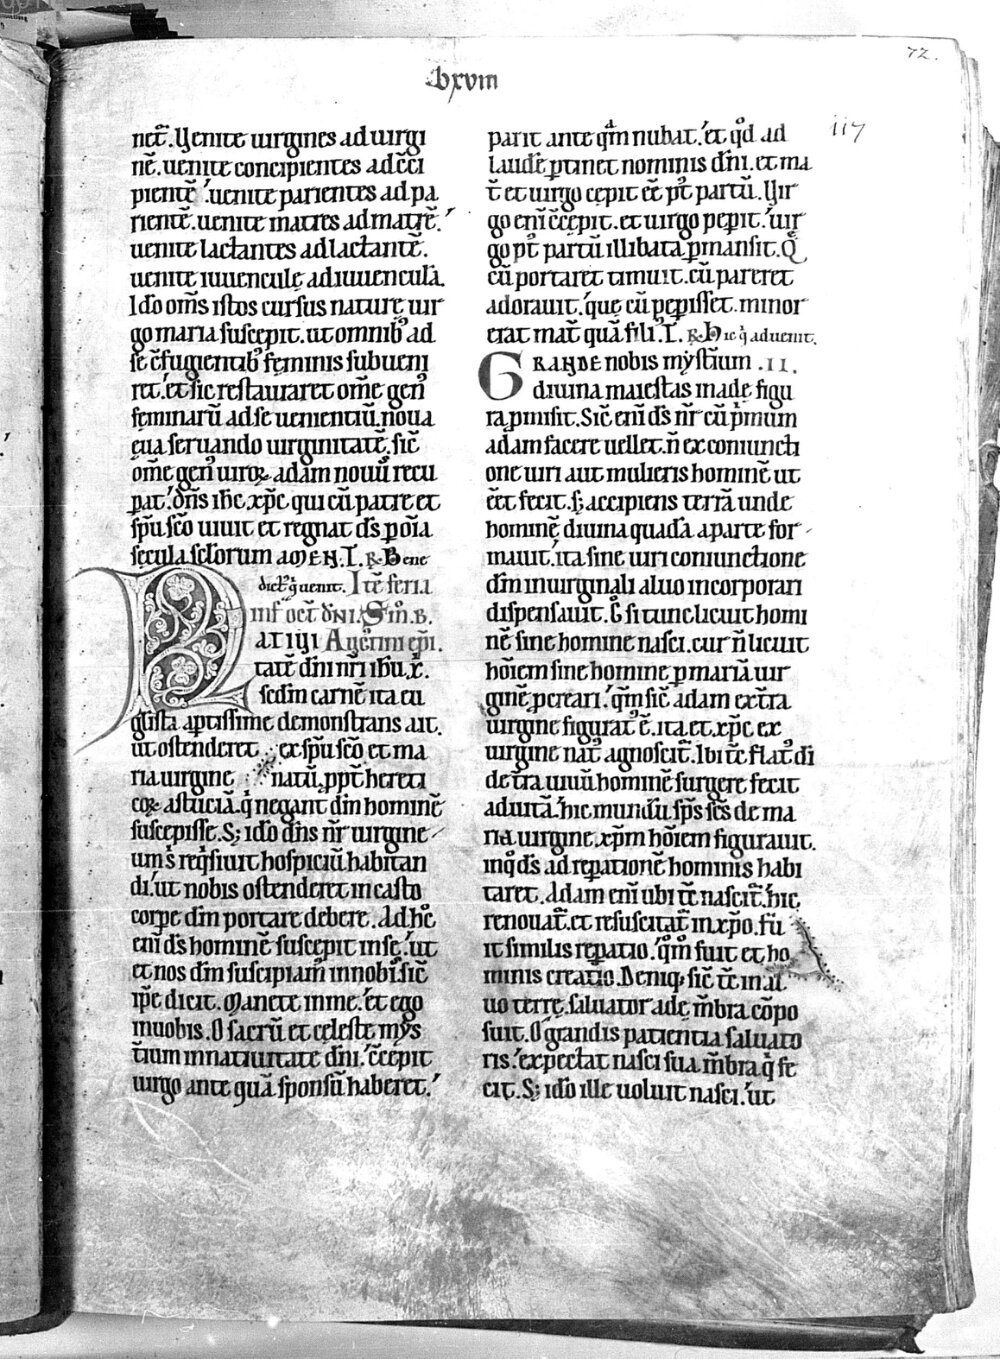 72.
lxviii
117
net̄. Venite uirgines ad uirgi
nē. uenite concipientes ad c̄ci
pientē. uenite parientes ad pa
rientē. uenite matres ad matrē.
uenite lactantes ad lactantē.
uenite iuuencule ad iuuenculā.
Ido oms̄ istos cursus nature uir
go maria suscepit. ut omnib⁹ ad
se c̄fugientib⁹ feminis subueni
ret. et sic restauraret ome gen⁹
feminarū ad se uenientiū noua
eua seruando uirginitatē. sic̄
ome gen⁹ uiroꝝ adam nouū recu
ꝑat. dns̄ ihc xp̄c qui cū patre et
sp̄u sc̄o uiuit et regnat ds̄ ꝑ oīa
secula sc̄lorum AMEN. T. R. Bene
dict⁹ q̇ uenit. Itē feria
inf oct̄ dn̄i. Sm̊. B.
AT IIII Augt̄ini ep̄i.
tatē dni n̄ri ihū. x̄.
sedm̄ carnē ita eu
gl̄ista aptissime demonstrans ait.
ut ostenderet ex sp̄u sc̄o et ma
ria uirgine natū. ꝓpt̄ hereti
coꝝ astuciā. q̇ negant dm̄ hominē
suscepisse. S; ido dns̄ nr̄ uirgine
um's req̇siuit hospiciū habitan
di. ut nobis ostenderet in casto
corpe dm̄ portare debere. Ad hc̄
enī ds̄ hominē suscepit in se. ut
et nos dm̄ suscipiam⁹ in nobis. sic̄
ip̄e dicit. Manete in me. et ego
in uobis. O sacrū et celeste mys
t̄ium in natiuitate dn̄i. c̄cepit
uirgo ante quā sponsū haberet.
parit ante qm̄ nubat. et qd̄ ad
laudē ptinet nominis dn̄i. et ma
t̄ et uirgo cepit ēē pt̄ partū. Uir
go enī c̄cepit. et uirgo pepit. uir
go pt̄ partū illibata ꝑmansit. Q̄
cū portaret timuit. cū pareret
adorauit. que cū pepisset. minor
erat mat̄ quā fili⁹. T. R. Hic q̇ aduenit.
GRANDE nobis myst̄ium .II.
diuina maiestas in ade figu
ra pinsit. Sic̄ enī ds̄ nr̄ cū ṗmum
adam facere uellet. n̄ ex coniuncti
one uiri aut mulieris hominē ut
ēēt fecit. S; accipiens terrā unde
hominē diuina quadā aparte for
mauit. ita sine uiri coniunctione
dm̄ in uirginali aluo incorporari
dispensauit. Ē si tunc licuit homi
nē sine homine nasci. cur n̄ licuit
hōiem sine homine ꝑ mariā uir
ginē pcreari. qm̄ sic̄ adam ex t̄ra
uirgine figurat⁹ ē. ita et xp̄c ex
uirgine nat⁹ agnoscit̄. Ibi tē flat⁹ di
de t̄ra uiuū hominē surgere fecit
ad uitā. hic mundū sp̄s sc̄s de ma
ria uirgine xp̄m hōiem figurauit.
in q̇ ds̄ ad repationē hominis habi
taret. Adam enī ubi tē nascit̄. hic
renouat̄. et resuscitat̄ in xp̄o. Fu
it similis repatio. qm̊ fuit et ho
minis creatio. Deniq; sic̄ tē in al
uo terre. saluator ade m̄bra cōpo
suit. O grandis patientia saluato
ris. expectat nasci sua m̄bra q̇ fe
cit. S; ido ille uoluit nasci. ut